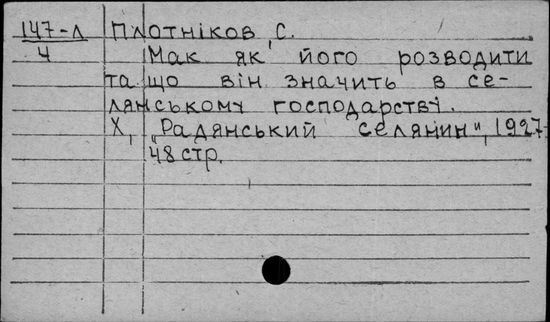 147-л Плотніков, С.
4 Мак як його розводити
та що він значить в се-
лянському господарстві.
Х., "Радянський селянин", 1927
48 стр.